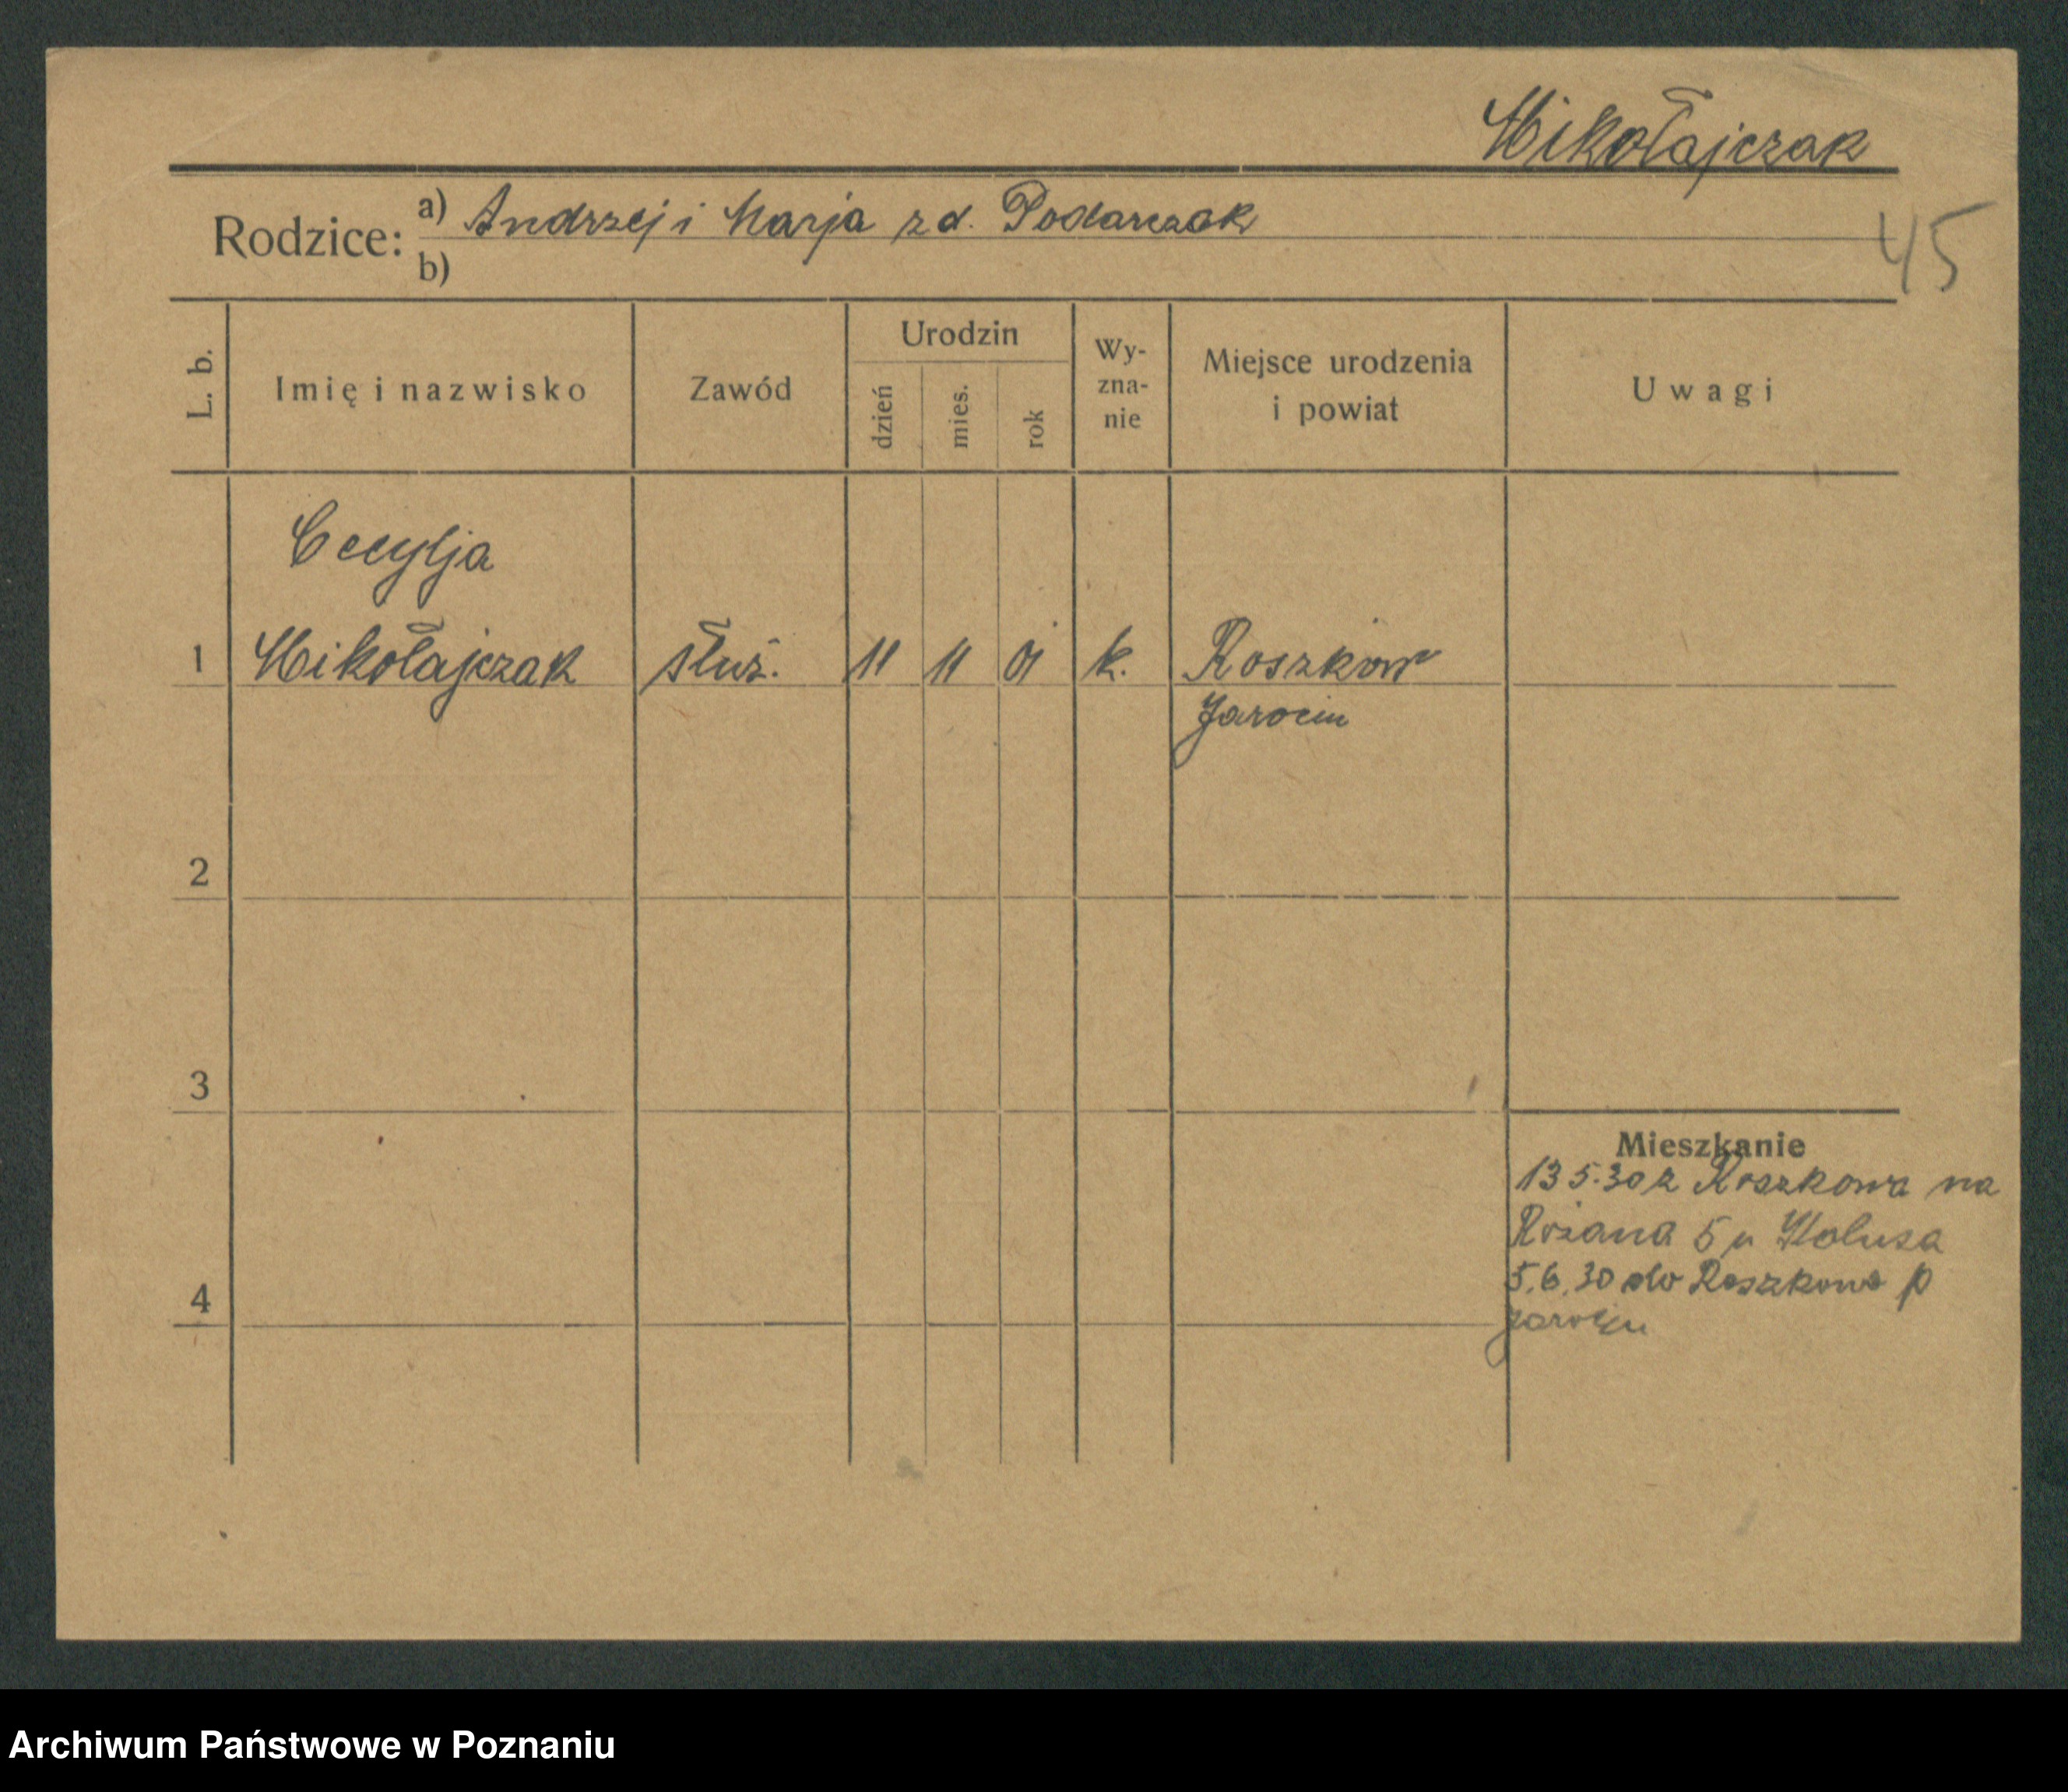 Mikołajczak
Rodzice: a) Andrzej i Marja zd. Podarczak
b)
45
L. b.
Imię i nazwisko
Zawód
Urodzin
dzień
mies.
rok
Wy-
zna-
nie
Miejsce urodzenia
i powiat
Uwagi
Cecylja
1 Mikołajczak służ. 11 11 01 k. Roszków
Jarocin
2
3
Mieszkanie
13 5.30 z Roszkowa na
Różana 5 u
5.6.30 do Roszkowa p
4
Jarocin
Archiwum Państwowe w Poznaniu